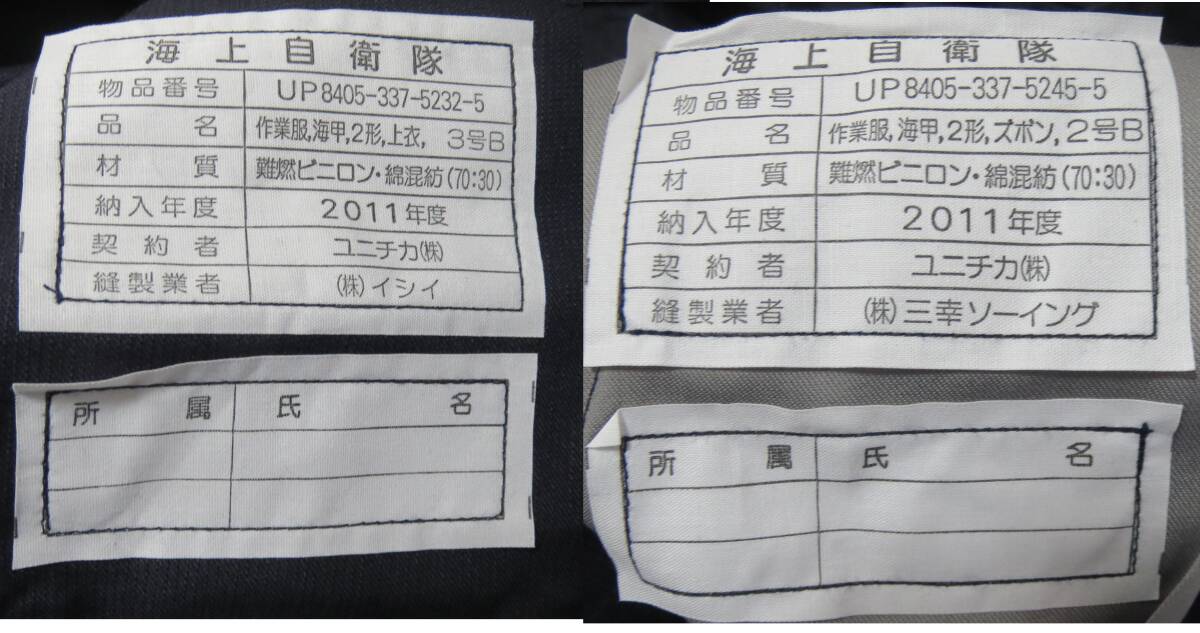 海上自衛隊
物品番号 UP8405-337-5232-5
品名 作業服,海甲,2形,上衣, 3号B
材質 難燃ビニロン・綿混紡(70:30)
納入年度 2011年度
契約者 ユニチカ(株)
縫製業者 (株)イシイ
所属 氏名
海上自衛隊
物品番号 UP8405-337-5245-5
品名 作業服,海甲,2形,ズボン,2号B
材質 難燃ビニロン・綿混紡(70:30)
納入年度 2011年度
契約者 ユニチカ(株)
縫製業者 (株)三幸ソーイング
所属 氏名